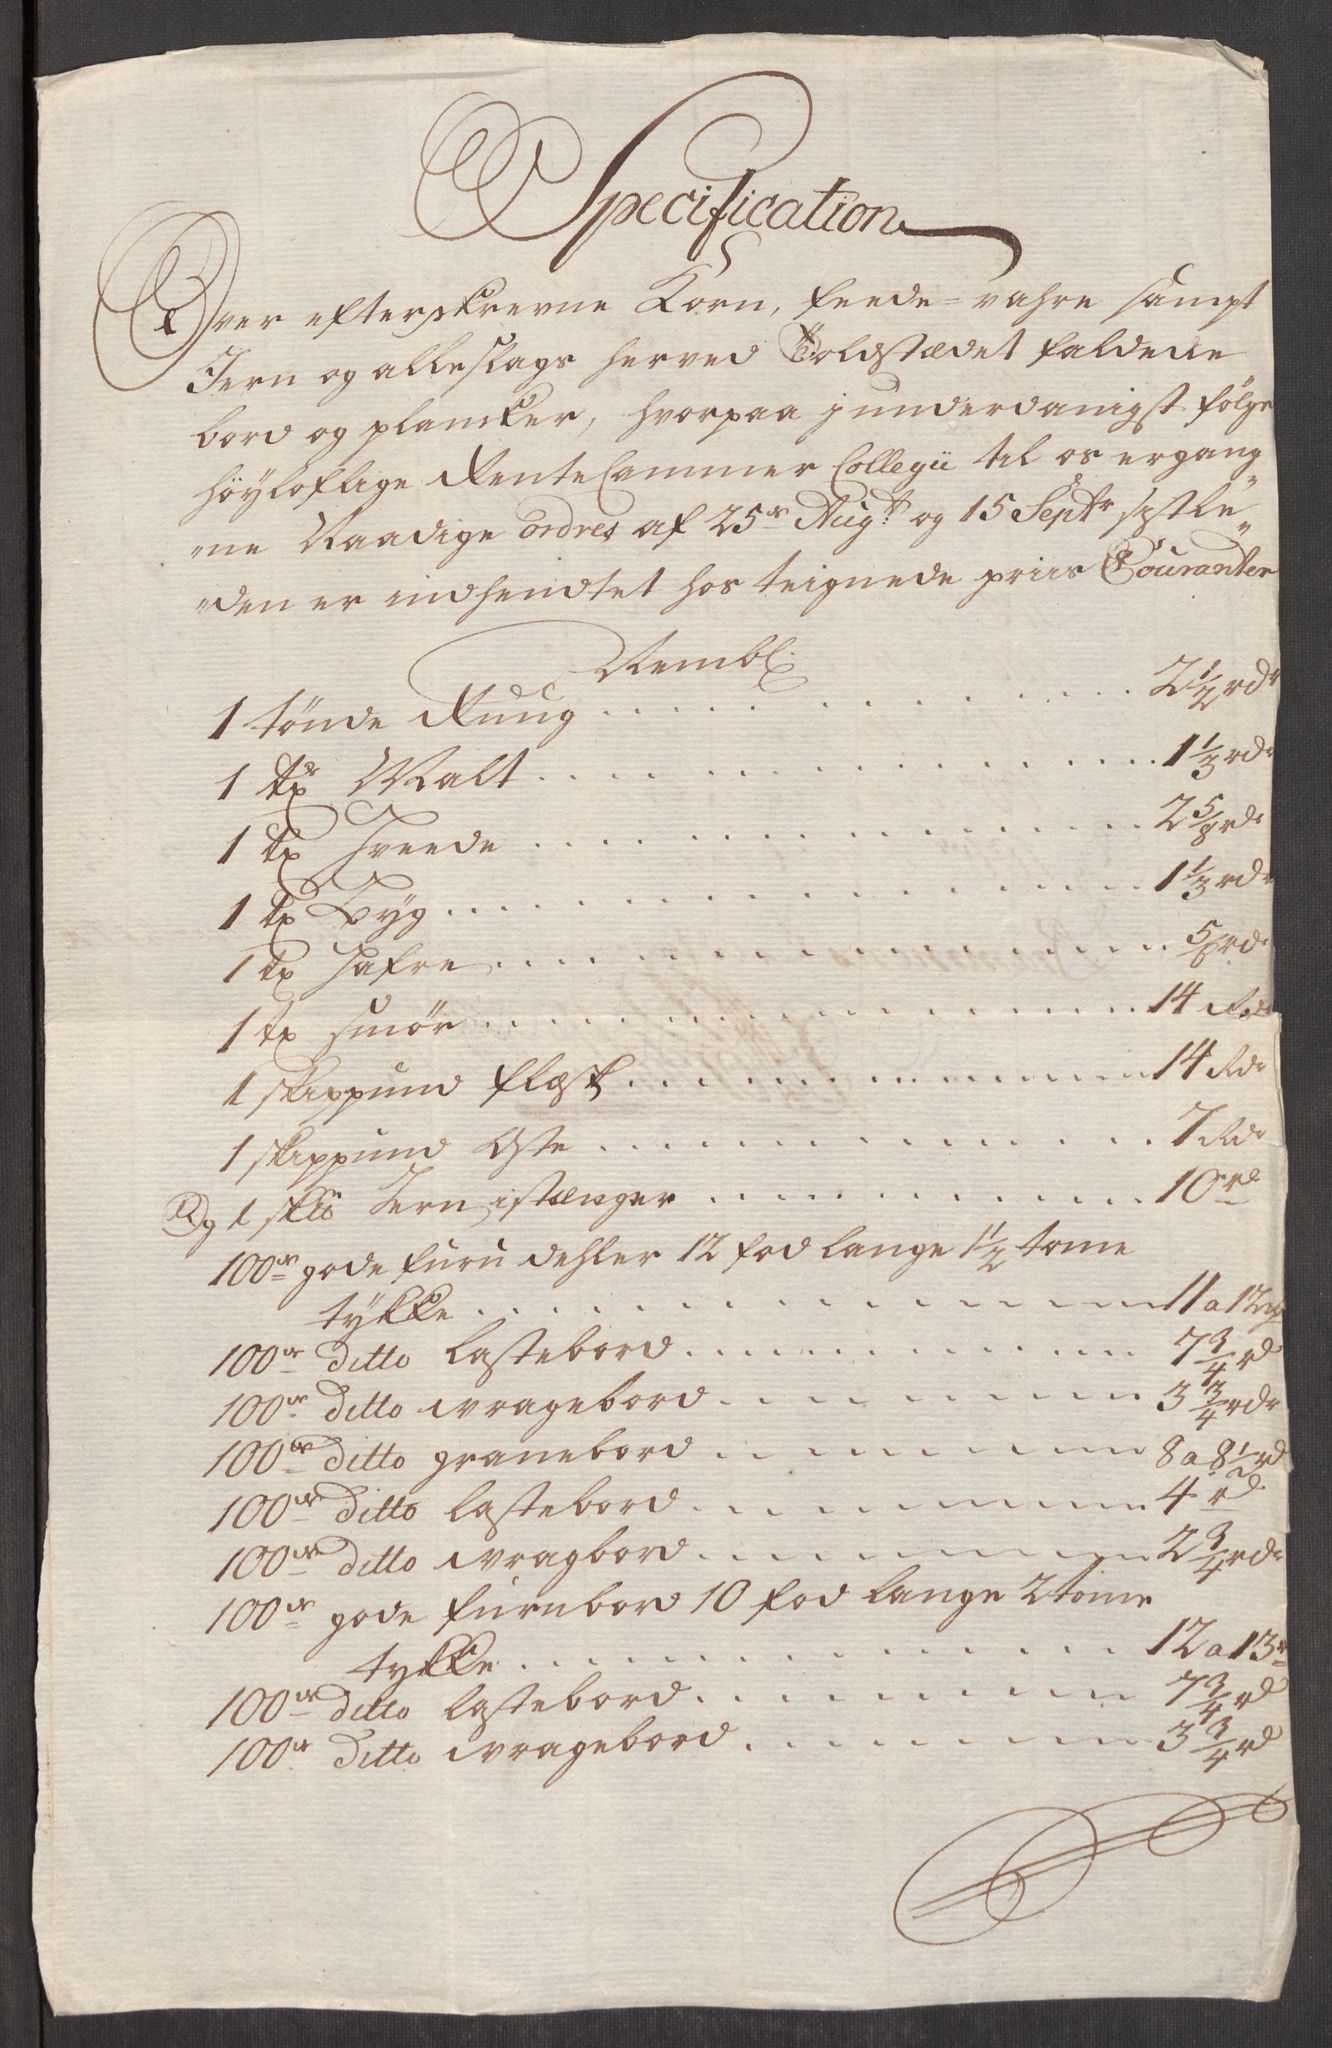 Specification
Over efterskrevne Korn, feede-vahre sampt
Jern og alle slags herved Toldstædet faldene
bord og plancker, hvorpaa j underdanigst følge
höyloflige Rente Cammer Collegii til os ergang„
„ne Naadige ordres af 25de Augti og 15 Septr sistle„
„den er indhendtet hos teignede priis Couranter
Nembl.
1 tønde Ruug . . . . . 2 1/2 rdr
1 td Malt . . . . . 1 1/3 rdr
1 td Hveede . . . . . 2 5/8 rdr
1 td Byg . . . . . 1 1/3 rdr
1 td Hafre . . . . . 5/6 rdr
1 td smör . . . . . 14 Rdr
1 skippund flesk . . . . . 14 Rdr
1 skippund Oste . . . . . 7 Rdr
Og 1 sklb Jern i stænger . . . . . 10 rd
100de gode furu dehler 12 fod lange 1 1/2 tome
tykke . . . . . 11 a 12 rd
100de ditto lastebord . . . . . 7 3/4 rd
100de ditto wragebord . . . . . 3 3/4 rdr
100de ditto granebord . . . . . 8 a 8 1/2 rd
100de ditto lastebord . . . . . 4 rd
100de ditto wragbord . . . . . 2 3/4 rdr
100de gode furubord 10 fod lange 2 tome
tykke . . . . . 12 a 13 r
100de ditto lastebord . . . . . 7 3/4 rd
100de ditto wragebord . . . . . 3 3/4 rd